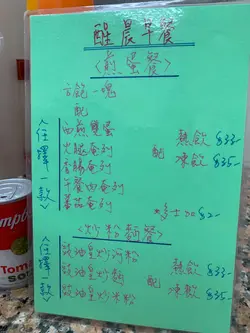 醒晨早餐
〈煎蛋餐〉
方飽一塊
配
〈任擇一款〉
西煎雙蛋
火腿奄列
香腸奄列
午餐肉奄列
蕃茄奄列
配
熱飲 $33-
凍飲 $35-
*多士加$2-
〈炒粉麵餐〉
〈任擇一款〉
豉油皇炒河粉
豉油皇炒麵
豉油皇炒米粉
配
熱飲 $33-
凍飲 $35-
Tomato